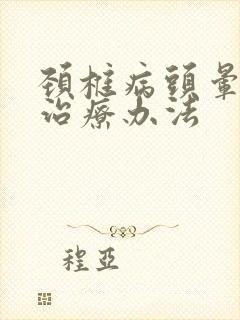 頚椎病頭暈
治療办法
程亞